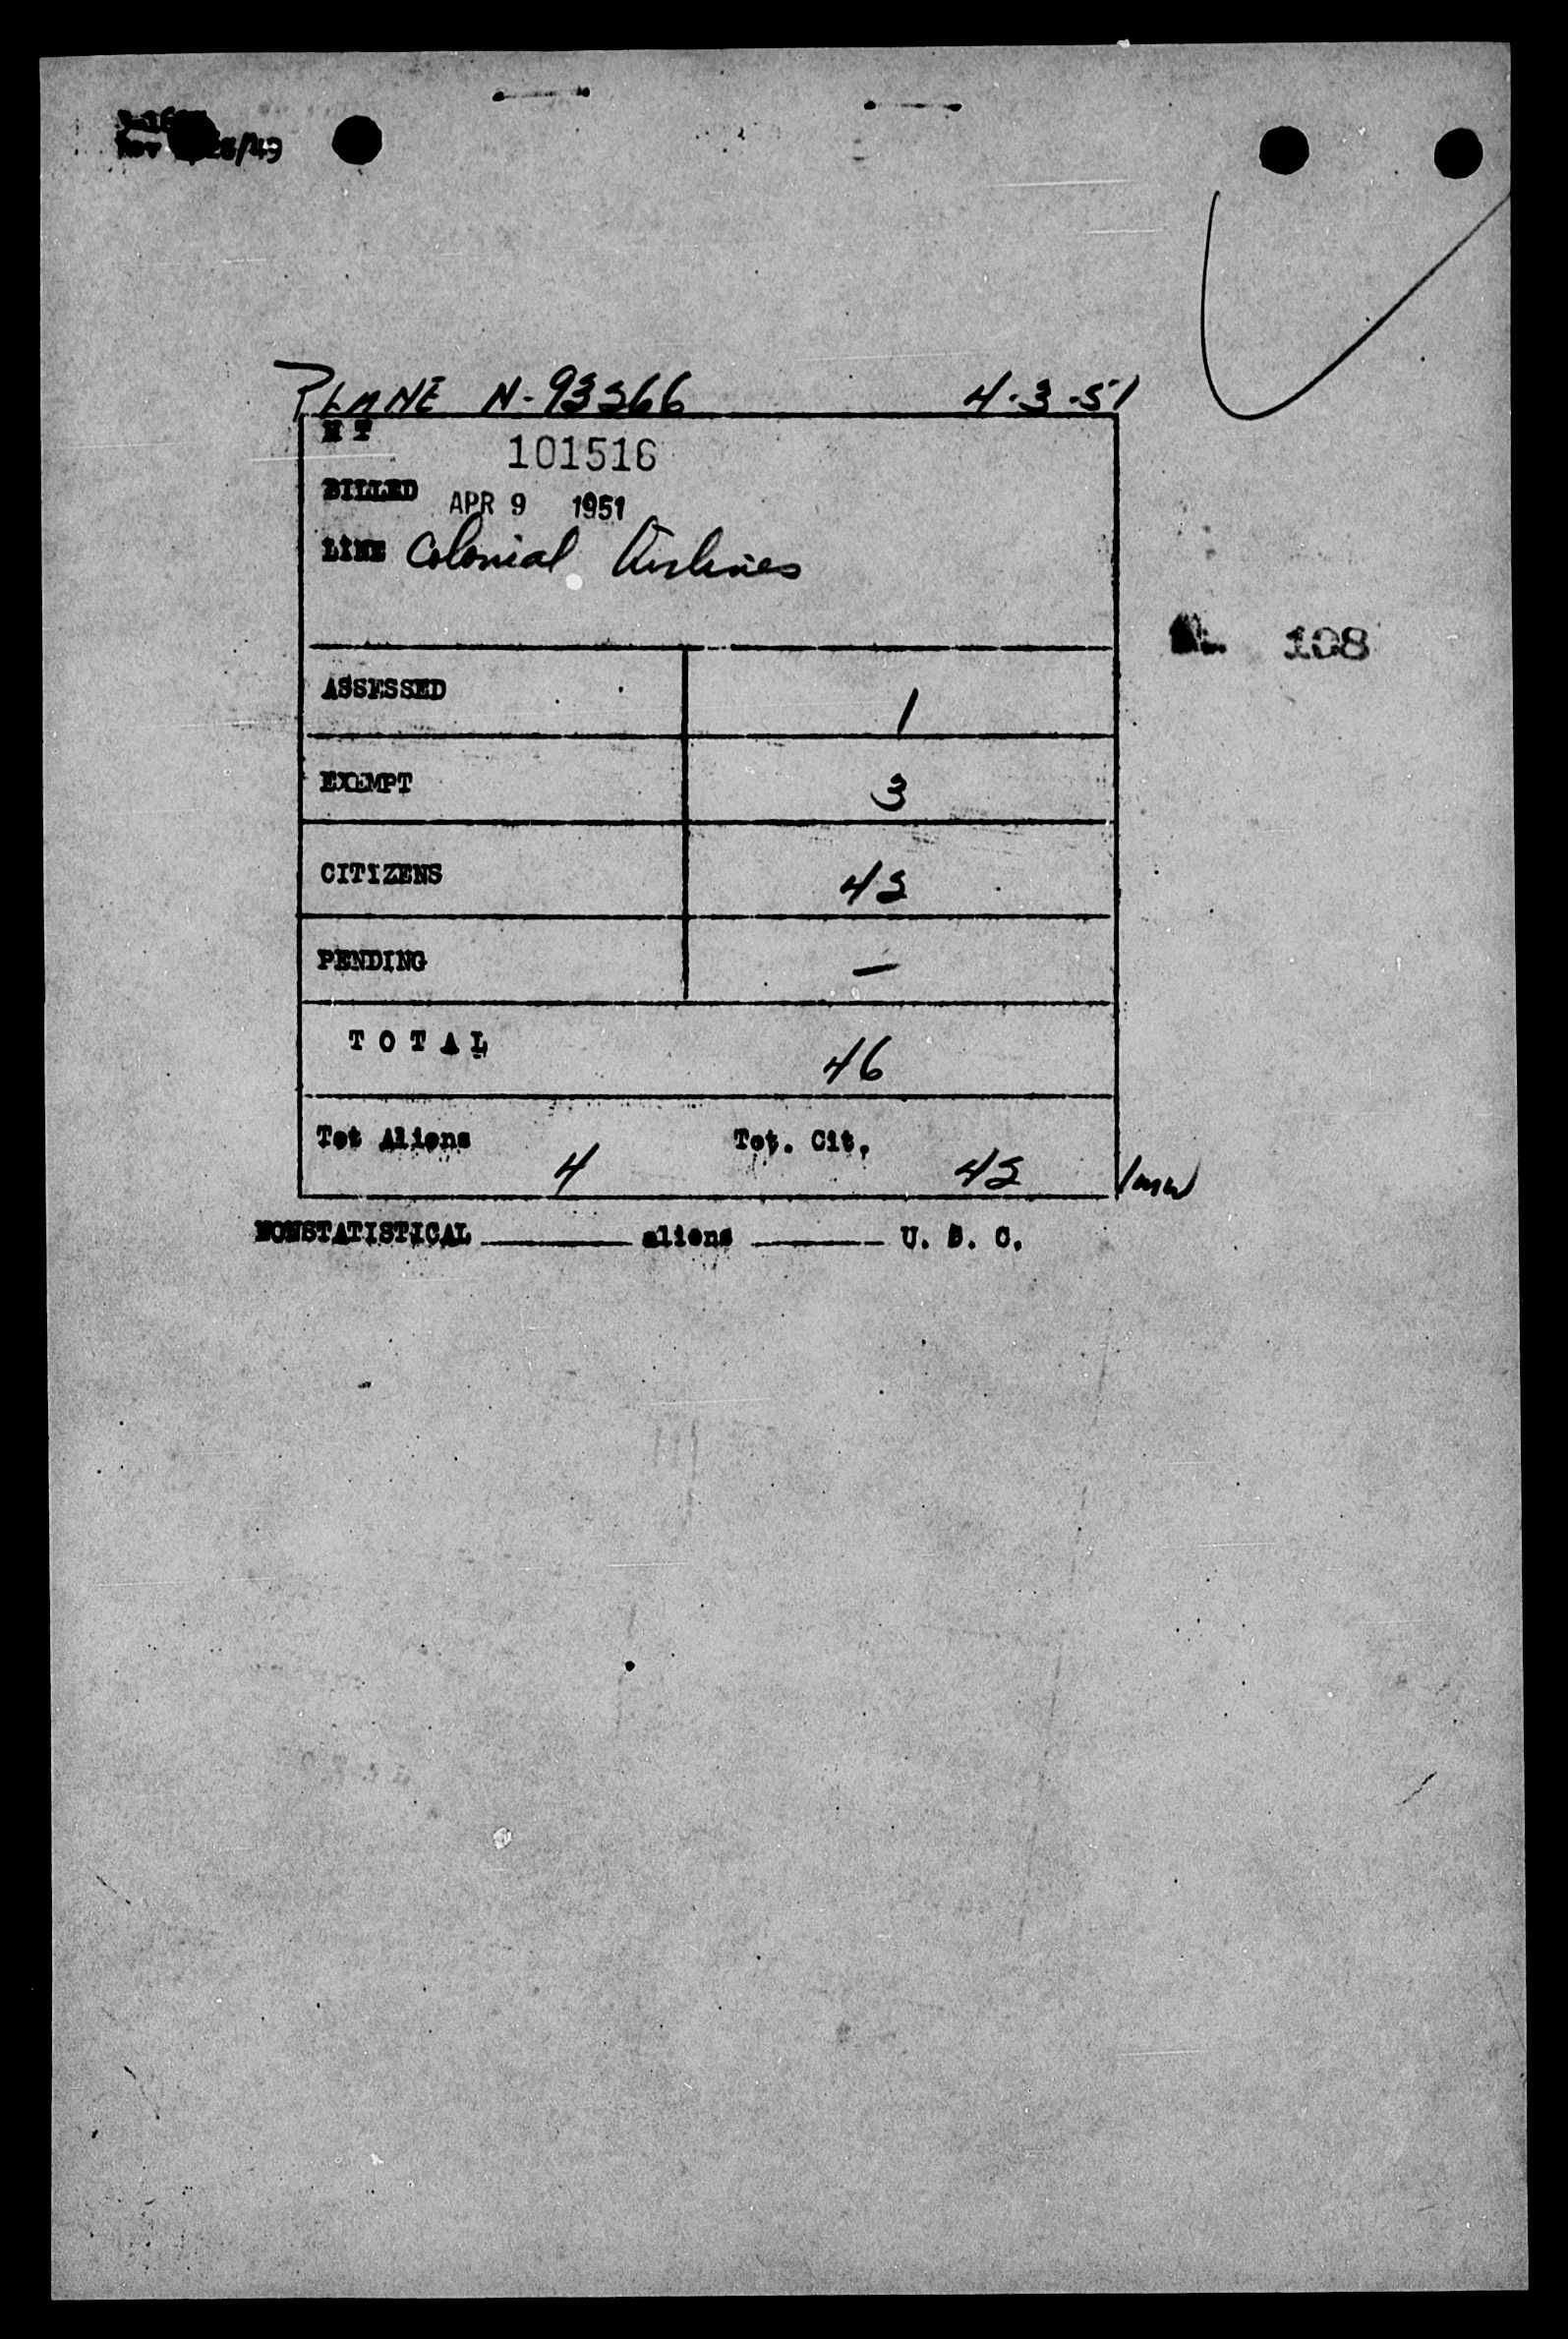 PLANE N-93266 4-3-51
M T
101516
BILLED APR 9 1951
LINE Colonial Airlines
108
ASSESSED 1
EXEMPT 3
CITIZENS 42
PENDING —
TOTAL 46
Tot Aliens 4 Tot. Cit. 42
NONSTATISTICAL ______ aliens ______ U. S. C.